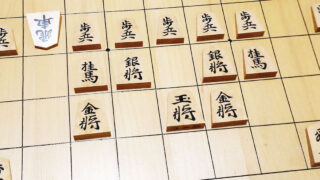 歩兵 歩兵 歩兵 歩兵 歩兵 歩兵
桂馬 銀将 銀将 桂馬
金将 王将 金将